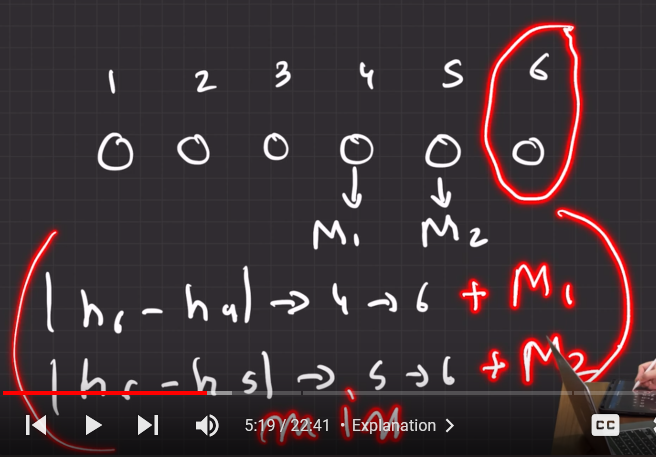 1 2 3 4 5 6
O O O O O O
↓ ↓
M1 M2
|h6 - h4| → 4 → 6 + M1
|h6 - h5| → 5 → 6 + M2
min
5:19 / 22:41 • Explanation >
CC